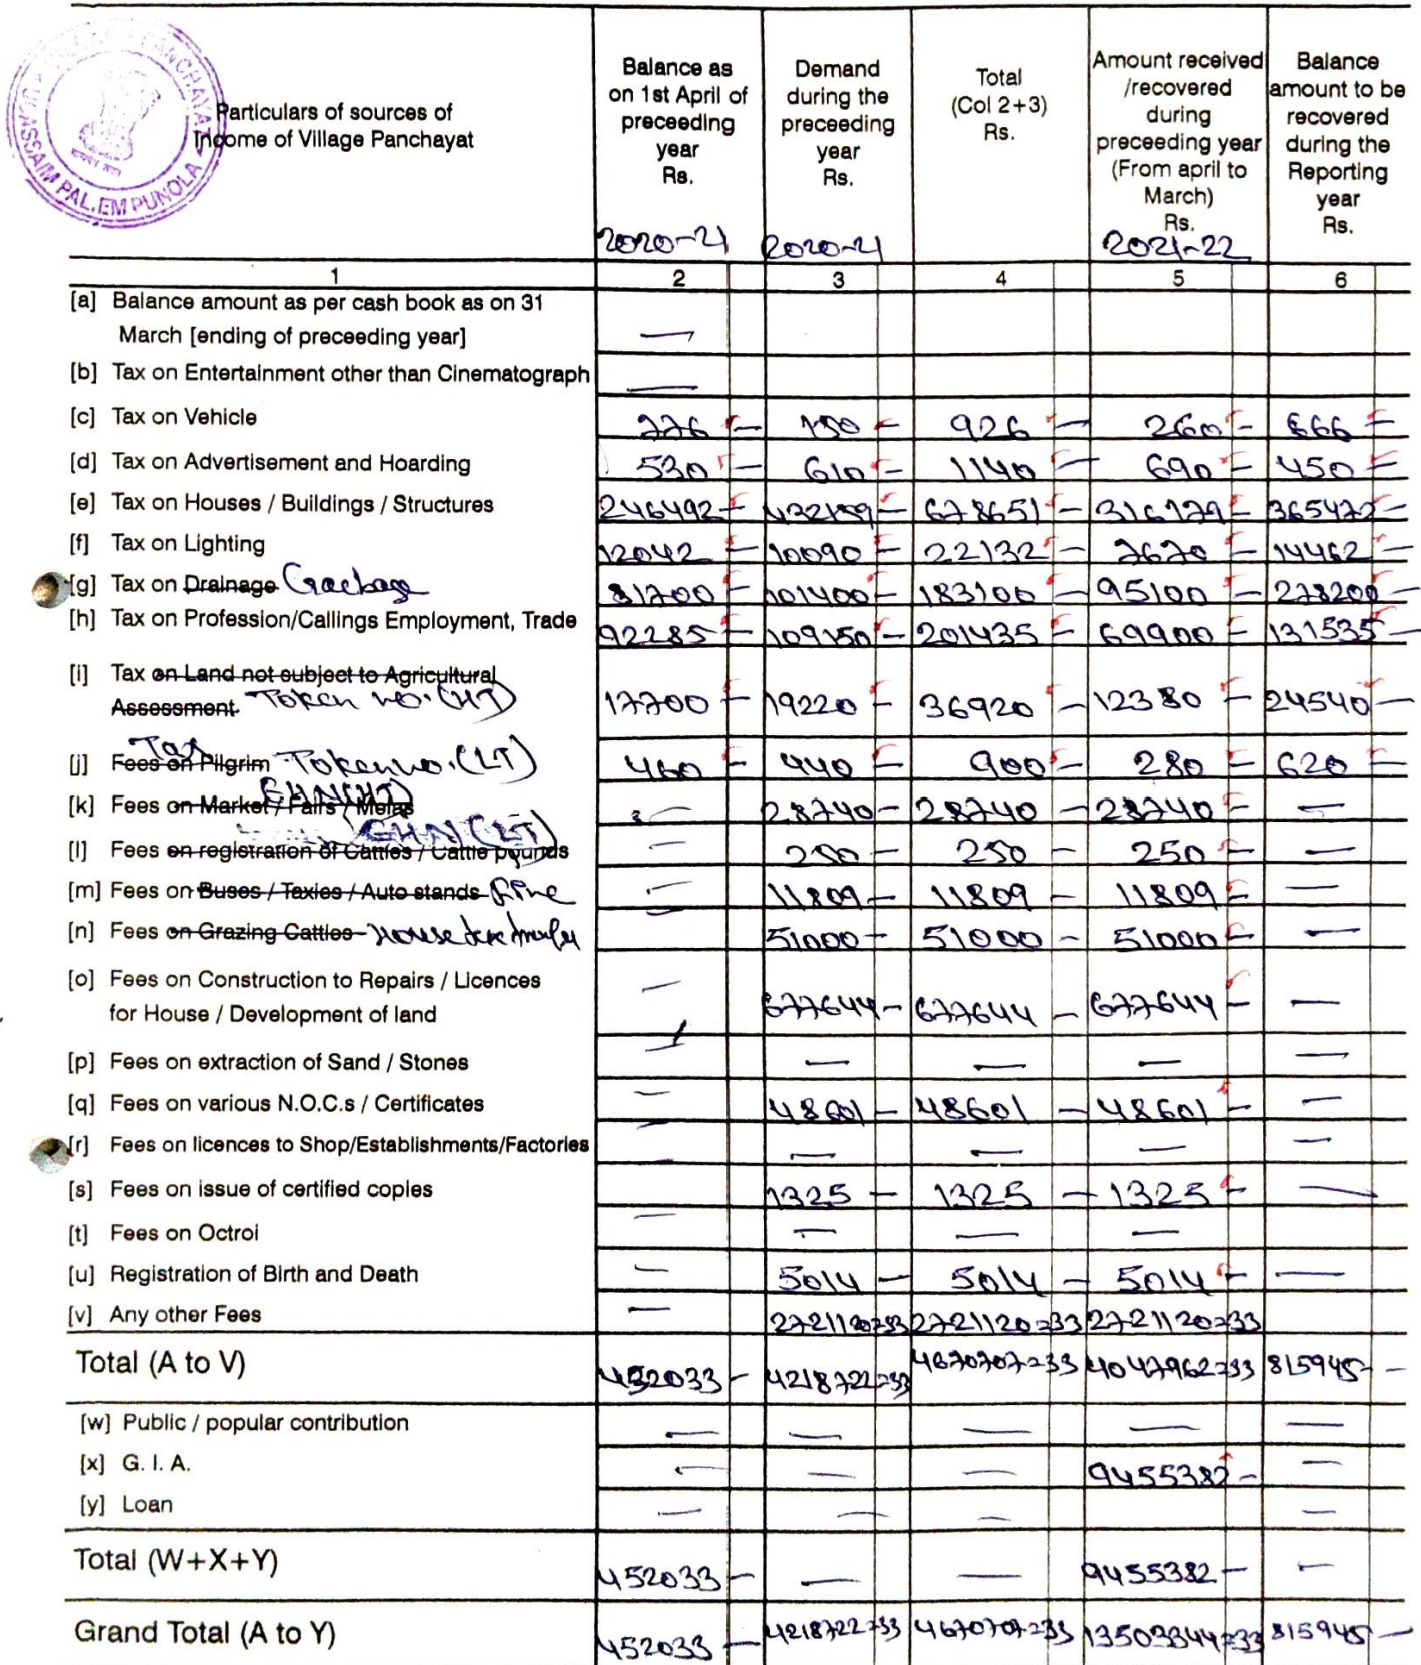 Particulars of sources of Income of Village Panchayat
Balance as on 1st April of preceeding year Rs. 2020-21
Demand during the preceeding year Rs. 2020-21
Total (Col 2+3) Rs.
Amount received /recovered during preceeding year (From april to March) Rs. 2021-22
Balance amount to be recovered during the Reporting year Rs.
1 2 3 4 5 6
[a] Balance amount as per cash book as on 31
March [ending of preceeding year] —
[b] Tax on Entertainment other than Cinematograph —
[c] Tax on Vehicle 776 - 150 - 926 - 260 - 666 -
[d] Tax on Advertisement and Hoarding 530 - 610 - 1140 - 690 - 450 -
[e] Tax on Houses / Buildings / Structures 246492 - 432159 - 678651 - 316179 - 365472 -
[f] Tax on Lighting 12042 - 10090 - 22132 - 7670 - 14462 -
[g] Tax on Drainage Garbage 81700 - 101400 - 183100 - 95100 - 278200 -
[h] Tax on Profession/Callings Employment, Trade 92285 - 109150 - 201435 - 69900 - 131535 -
[i] Tax on Land not subject to Agricultural
Assessment. Token no. (HT) 17700 - 19220 - 36920 - 12380 - 24540 -
[j] Fees on Pilgrim Tax Token no. (LT) 460 - 440 - 900 - 280 - 620 -
[k] Fees on Market / Fairs / Melas GHN(HT) — 28740 - 28740 - 28740 - —
GHN(LT)
[l] Fees on registration of Cattles / Cattle pounds — 250 - 250 - 250 - —
[m] Fees on Buses / Taxies / Auto stands Fine — 11809 - 11809 - 11809 - —
[n] Fees on Grazing Cattles House tax transfer 51000 - 51000 - 51000 - —
[o] Fees on Construction to Repairs / Licences —
for House / Development of land 677644 - 677644 - 677644 - —
[p] Fees on extraction of Sand / Stones — — — —
[q] Fees on various N.O.C.s / Certificates — 48601 - 48601 - 48601 - —
[r] Fees on licences to Shop/Establishments/Factories — — — — —
[s] Fees on issue of certified copies 1325 - 1325 - 1325 - —
[t] Fees on Octroi — — — —
[u] Registration of Birth and Death — 5014 - 5014 - 5014 - —
[v] Any other Fees — 2721120=33 2721120=33 2721120=33
Total (A to V) 452033 - 4218722=33 4670707=33 4047962=33 815945 -
[w] Public / popular contribution — — — — —
[x] G. I. A. — — — 9455382 - —
[y] Loan — — — —
Total (W+X+Y) 452033 - — — 9455382 - —
Grand Total (A to Y) 452033 - 4218722=33 4670707=33 13503344=33 815945 -